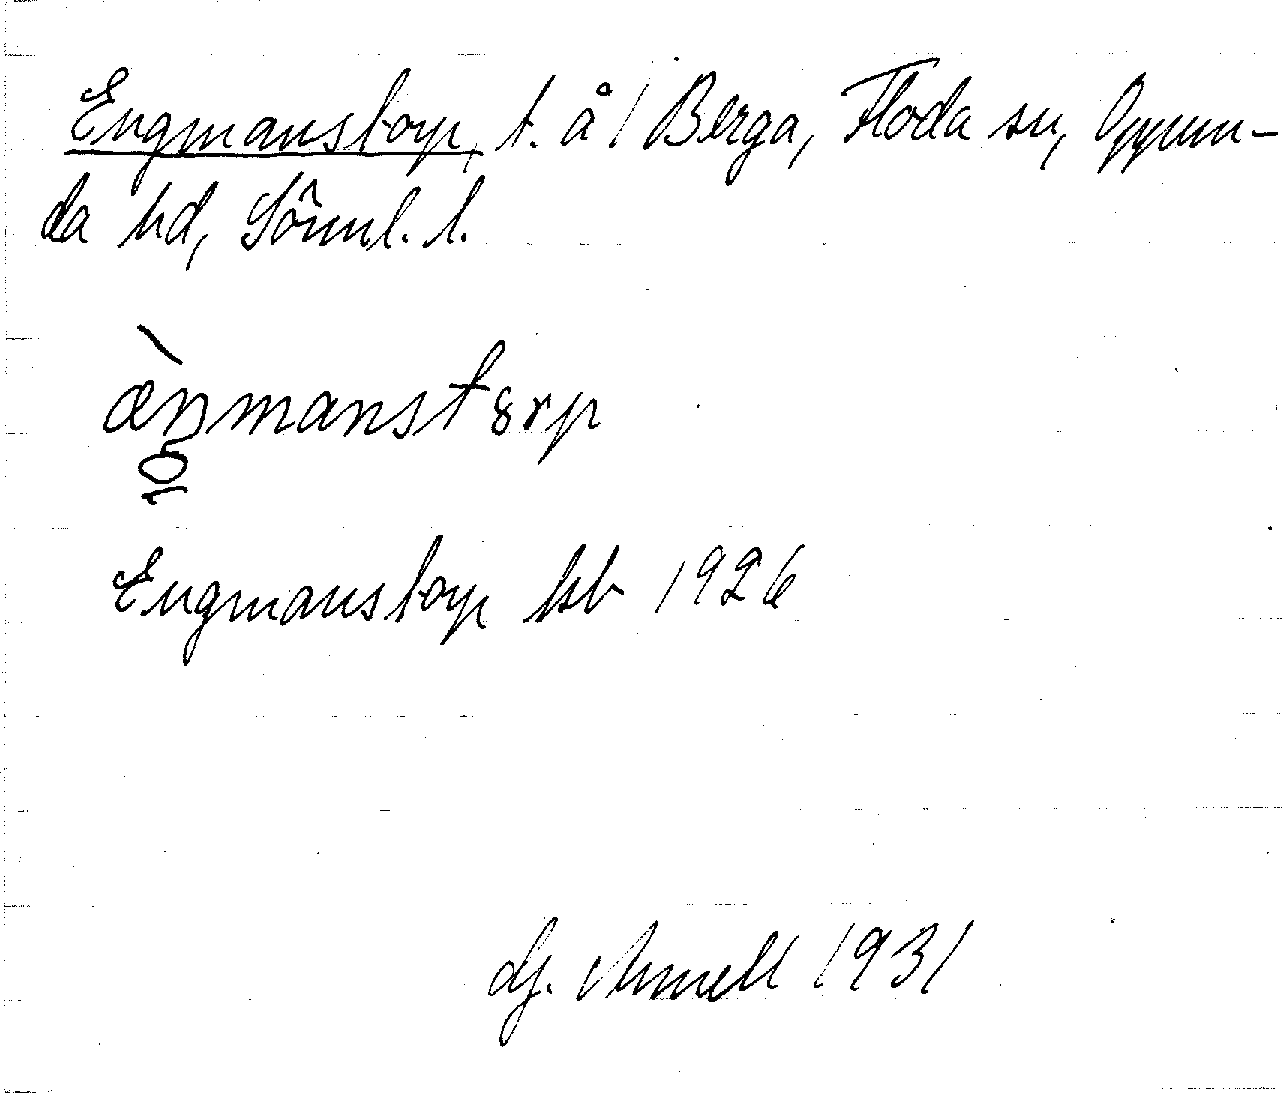 Engmanstorp, t. å 1 Berga, Floda sn, Oppun-
da hd, Sörml. l.
æŋmanstorp
Engmanstorp kb 1926
1931